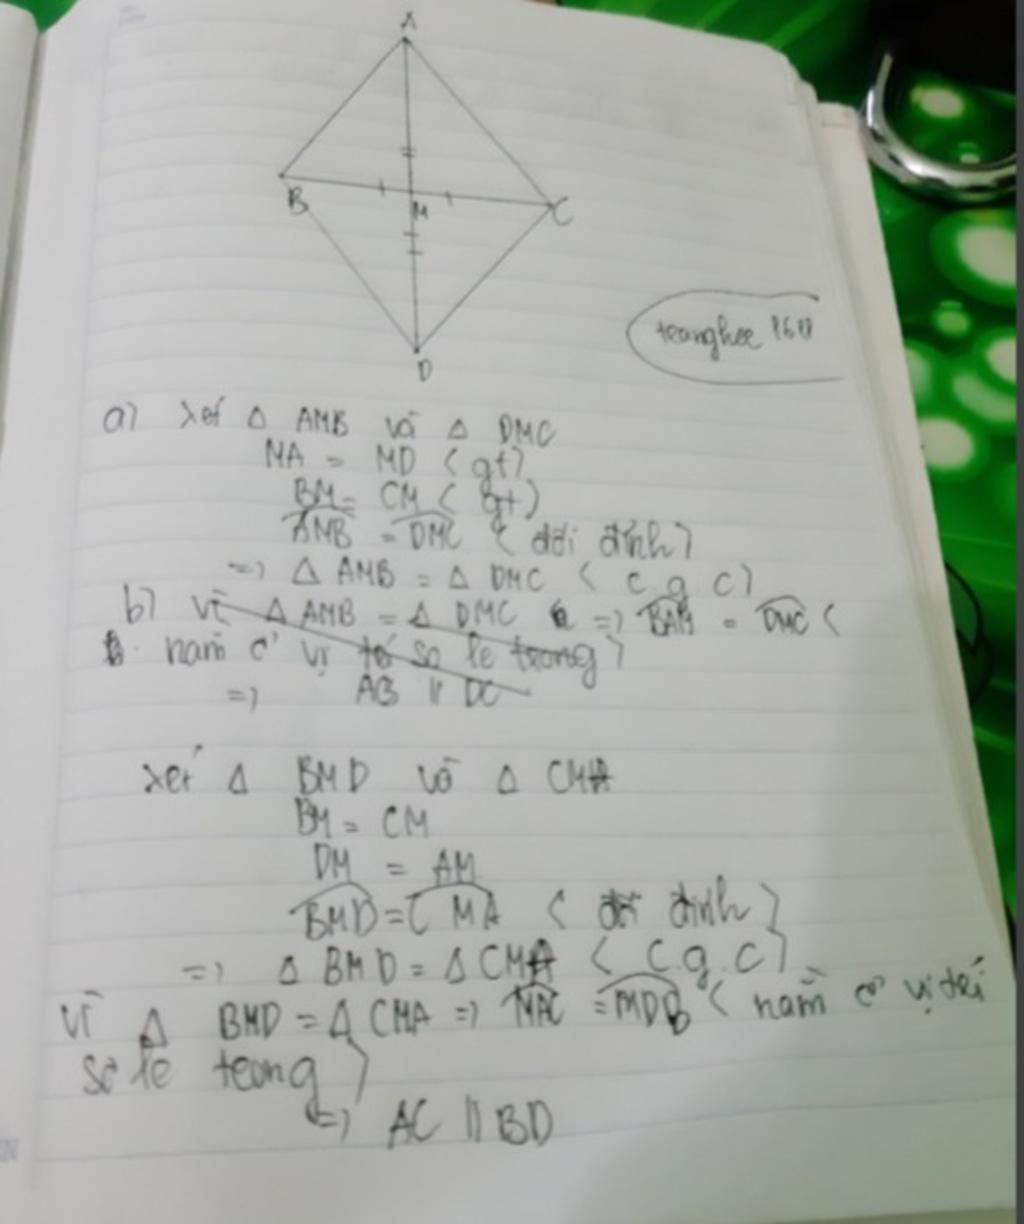 A
B
M
C
D
teanghee 1611
a) xét Δ AMB và Δ DMC
MA = MD ( gt)
BM = CM ( gt)
AMB = DMC ( đối đỉnh)
=> Δ AMB = Δ DMC ( c g c)
b) vì Δ AMB = Δ DMC => BAM = DMC (
nằm ở vị trí so le trong)
=> AB // DC
xét Δ BMD và Δ CMA
BM = CM
DM = AM
BMD = CMA ( đối đỉnh)
=> Δ BMD = Δ CMA ( c.g.c)
vì Δ BMD = Δ CMA => MAC = MDB ( nằm ở vị trí
so le trong)
=> AC // BD